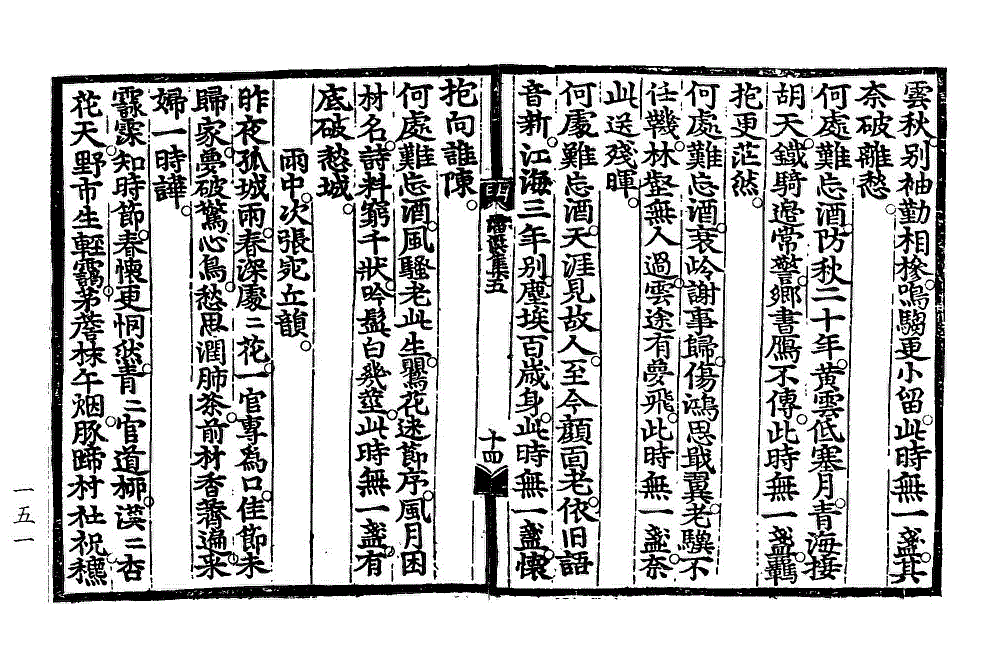 雲秋別袖勤相摻鳴騶更小留此時無一盞其
奈破離愁
何處難忘酒防秋二十年黃雲低塞月青海接
胡天鐵騎邊常警鄉書鴈不傳此時無一盞羈
抱更茫然
何處難忘酒衰岭謝事歸傷鴻思戢翼老驥不
任鞿林壑無人過雲途有夢飛此時無一盞奈
此送殘暉
何處難忘酒天涯見故人至今顔面老依旧語
音新江海三年別塵埃百歲身此時無一盞懷
抱向誰陳
何處難忘酒風騷老此生鸎花迷節序風月困
材名詩料窮千狀吟鬚白幾莖此時無一盞有
底破愁城
雨中次張宛丘韻
昨夜孤城雨春深處〻花一官專為口佳節未
歸家夢破驚心鳥愁思潤肺茶前材香薺遍来
婦一時譁
霢霂知時節春懷更惘然青〻官道柳漠〻杏
花天野市生輕靄茅簷袜午烟豚蹄村社祝穮
集五
十四
一五一